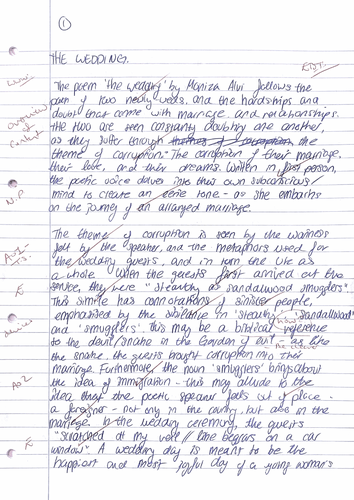 1
THE WEDDING.
The poem 'the wedding' by Moniza Alvi follows the
pain of two newly weds. and the hardships and
doubt that come with marriage. and relationships.
The two are seen constantly doubting one another,
as they suffer through the
theme of corruption. The corruption of their marriage,
their love, and their dreams. Written in first person,
the poetic voice delves into their own subconscious
mind to create an eerie tone - as she embarks
on the journey of an arranged marriage.
The theme of corruption is seen by the wariness
felt by the speaker, and the metaphors used for
the wedding guests, and in turn the life as
a whole. When the guests first arrived at the
service, they were "stealthy as sandalwood smugglers".
This simile has connotations of sinister people,
emphasised by the sibilance in 'stealthy', 'sandalwood'
and 'smugglers'. This may be a biblical reference
to the devil/snake in the Garden of - as like
the snake, the guests brought corruption into their
marriage. Furthermore, the noun 'smugglers' brings about
the idea of immigration - this may allude to the
idea that the poetic speaker feels out of place -
a foreigner - not only in the country, but also in the
marriage. In the wedding ceremony, the guests
"scratched at my veil // like beggars on a car
window". A wedding day is meant to be the
happiest and most joyful day of a young woman's
overview
of
content
N.P
device